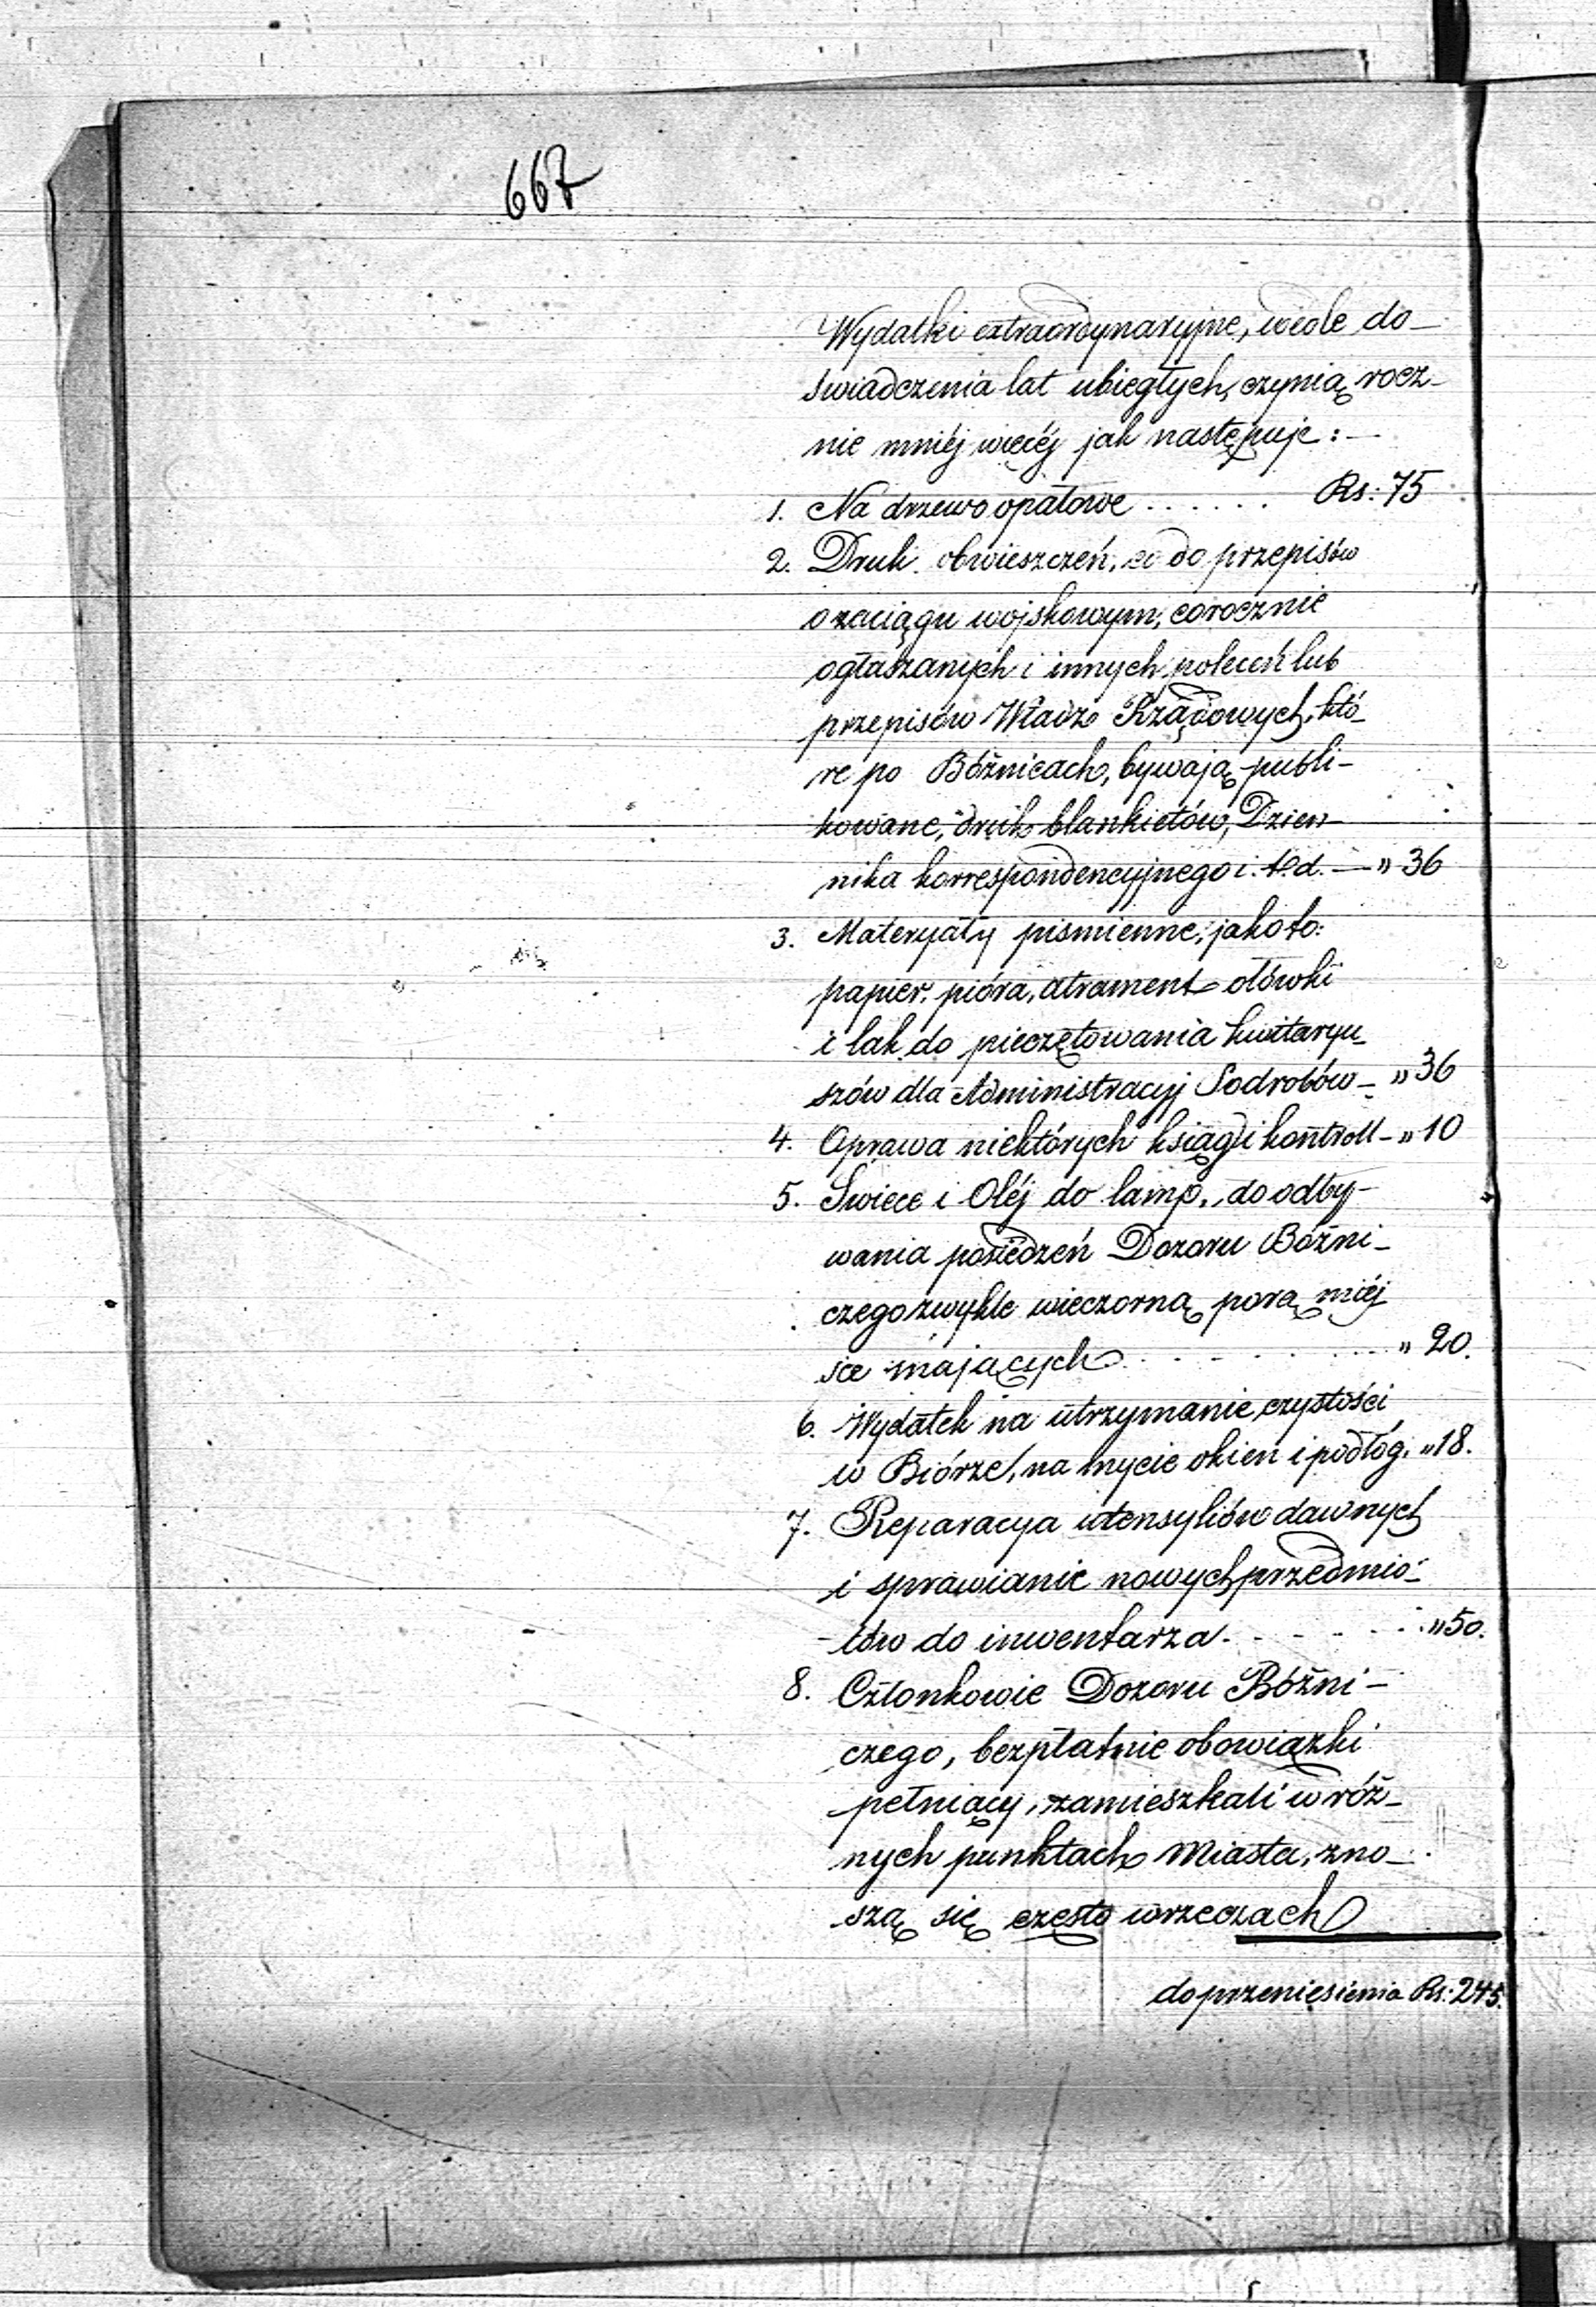 667
Wydatki extraordynaryjne, wedle do-
świadczenia lat ubiegłych, czynią rocz-
nie mniéj więcéj jak następuje: —
1. Na drzewo opałowe . . . . . . Rs: 75
2. Druk obwieszczeń, co do przepisów
o zaciągu wojskowym, corocznie
ogłaszanych i innych poleceń lub
przepisów Władz Rządowych, któ-
re po Bóźnicach, bywają publi-
kowane, druk blankietów, Dzien-
nika korrespondencyjnego i. t. d. — " 36
3. Materyały pismienne, jako to:
papier, pióra, atrament ołówki
i lak do pieczętowania kwitaryu-
szów dla Administracyj Sodrobów - " 36
4. Oprawa niektórych ksiąg i kontroll - " 10
5. Swiece i Oléj do lamp, do odby-
wania posiedzeń Dozoru Bóźni-
czego zwykle wieczorną porą miéj
sce mających . . . . . . . " 20.
6. Wydatek na utrzymanie czystości
w Biórze, na mycie okien i podłóg. " 18.
7. Reparacya utensyliów dawnych
i sprawianie nowych przedmio-
tów do inwentarza. - - - - - " 50.
8. Członkowie Dozoru Bóźni-
czego, bezpłatnie obowiązki
pełniący, zamieszkali w róż-
nych punktach Miasta, zno-
szą się często w rzeczach
do przeniesienia Rs: 245.